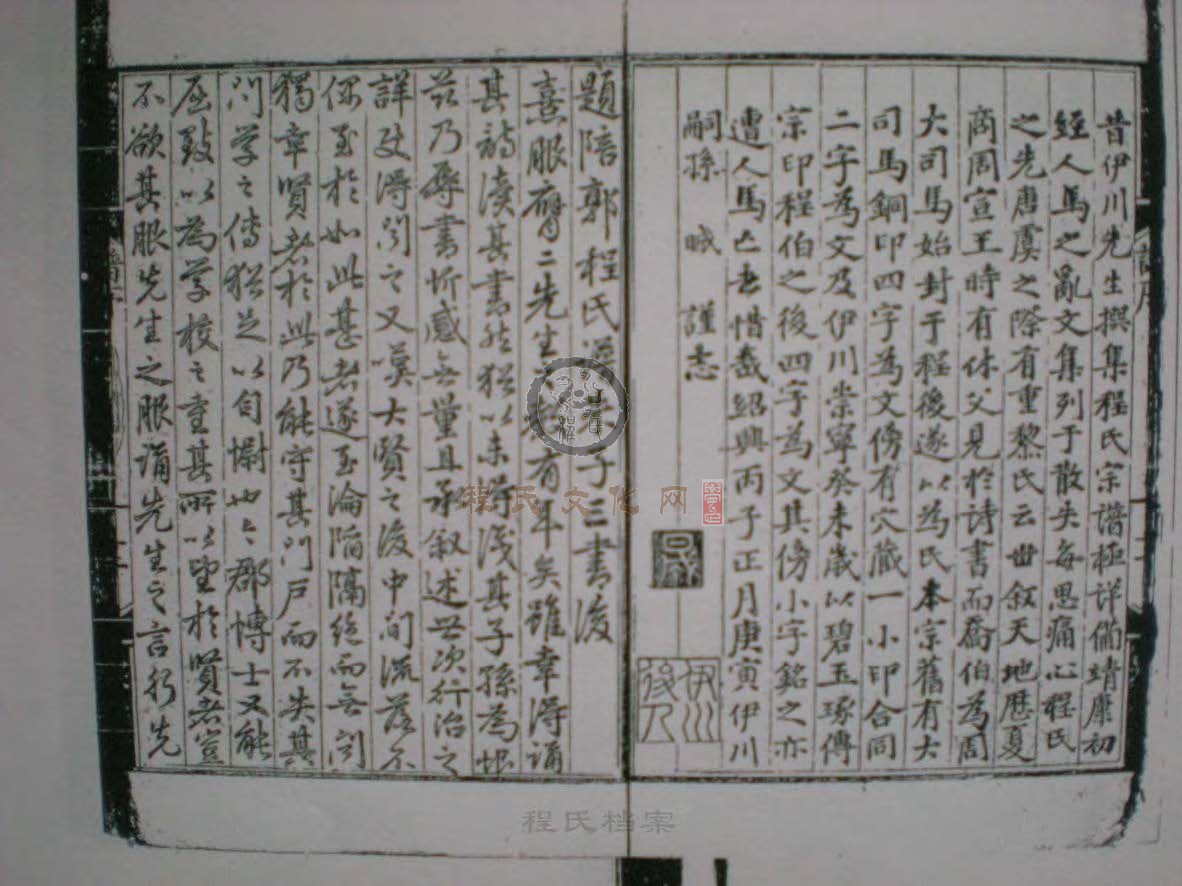 昔伊川先生撰集程氏宗譜極詳備靖康初
經人馬之亂文集列于散失每思痛心程氏
之先唐虞之際有重黎氏云世叙天地歷夏
商周宣王時有休父見於詩書而喬伯為周
大司馬始封于程後遂以為氏本宗舊有大
司馬銅印四字為文傍有穴藏一小印合同
二字為文及伊川崇寧癸未歲以碧玉琢傳
宗印程伯之後四字為文其傍小字銘之亦
遭人馬亡去惜哉紹興丙子正月庚寅伊川
嗣孫晠謹志
伊川後人
題陪郭程氏
子三書後
熹服膺二先生
有年矣雖幸得誦
其詩讀其書然猶以未得淺其子孫為恨
茲乃辱書忻感無量且承叙述世次行治之
詳廷得闻之又嘆大賢之後中间流落不
偶至於如此甚者遂至淪陷隔絕而無闻
獨幸賢者於此乃能守其门戶而不失其
门學之傳猶足以自慰也
郡博士又能
屈致以為學校之重其所以望於賢者豈
不欲其服先生之服誦先生之言行先
程氏文化网
程氏档案